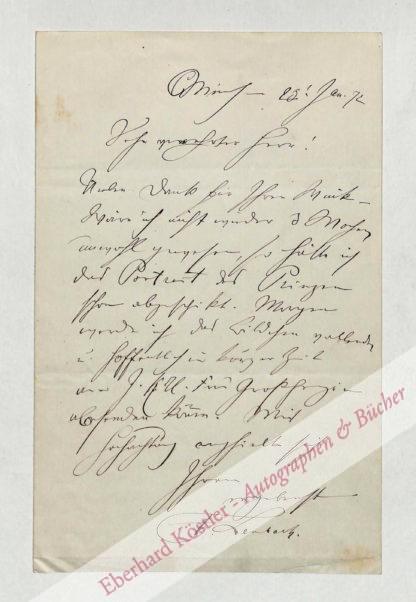 Münch – 23! Jan. 72
Sehr verehrter Herr!
Vielen Dank für Ihren Wink –
Wäre ich nicht wieder 3 Wochen
unwohl gewesen, so hätte ich
das Portrait des Prinzen
schon abgeschikt. Morgen
werde ich das Bildchen vollenden
u. hoffentlich in kurzer Zeit
an I. K. H. Frau Großherzogin
absenden können. Mit
Hochachtung
Ihr
ergebenst
Lenbach.
Eberhard Köstler - Autographen & Bücher